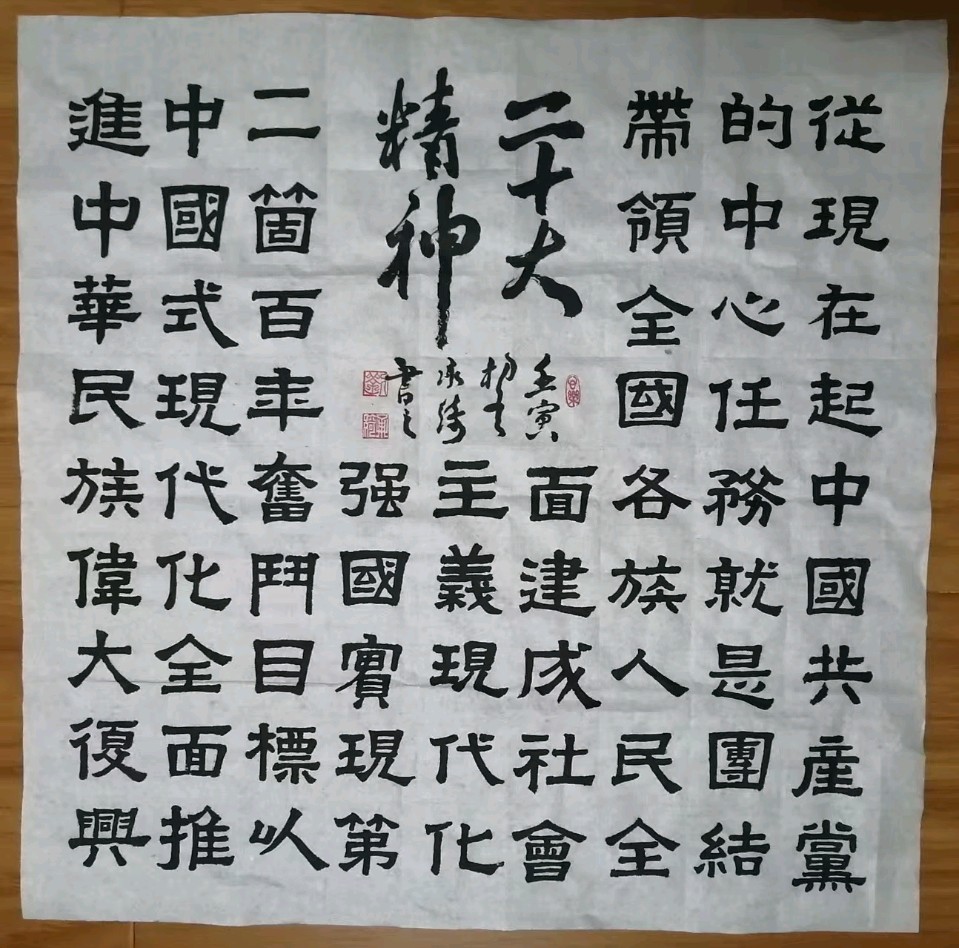 從現在起中國共産黨
的中心任務就是團結
帶領全國各族人民全
面建成社會
主義現代化
强國實現第
二箇百年奮鬥目標以
中國式現代化全面推
進中華民族偉大復興
二十大
精神
壬寅
書之